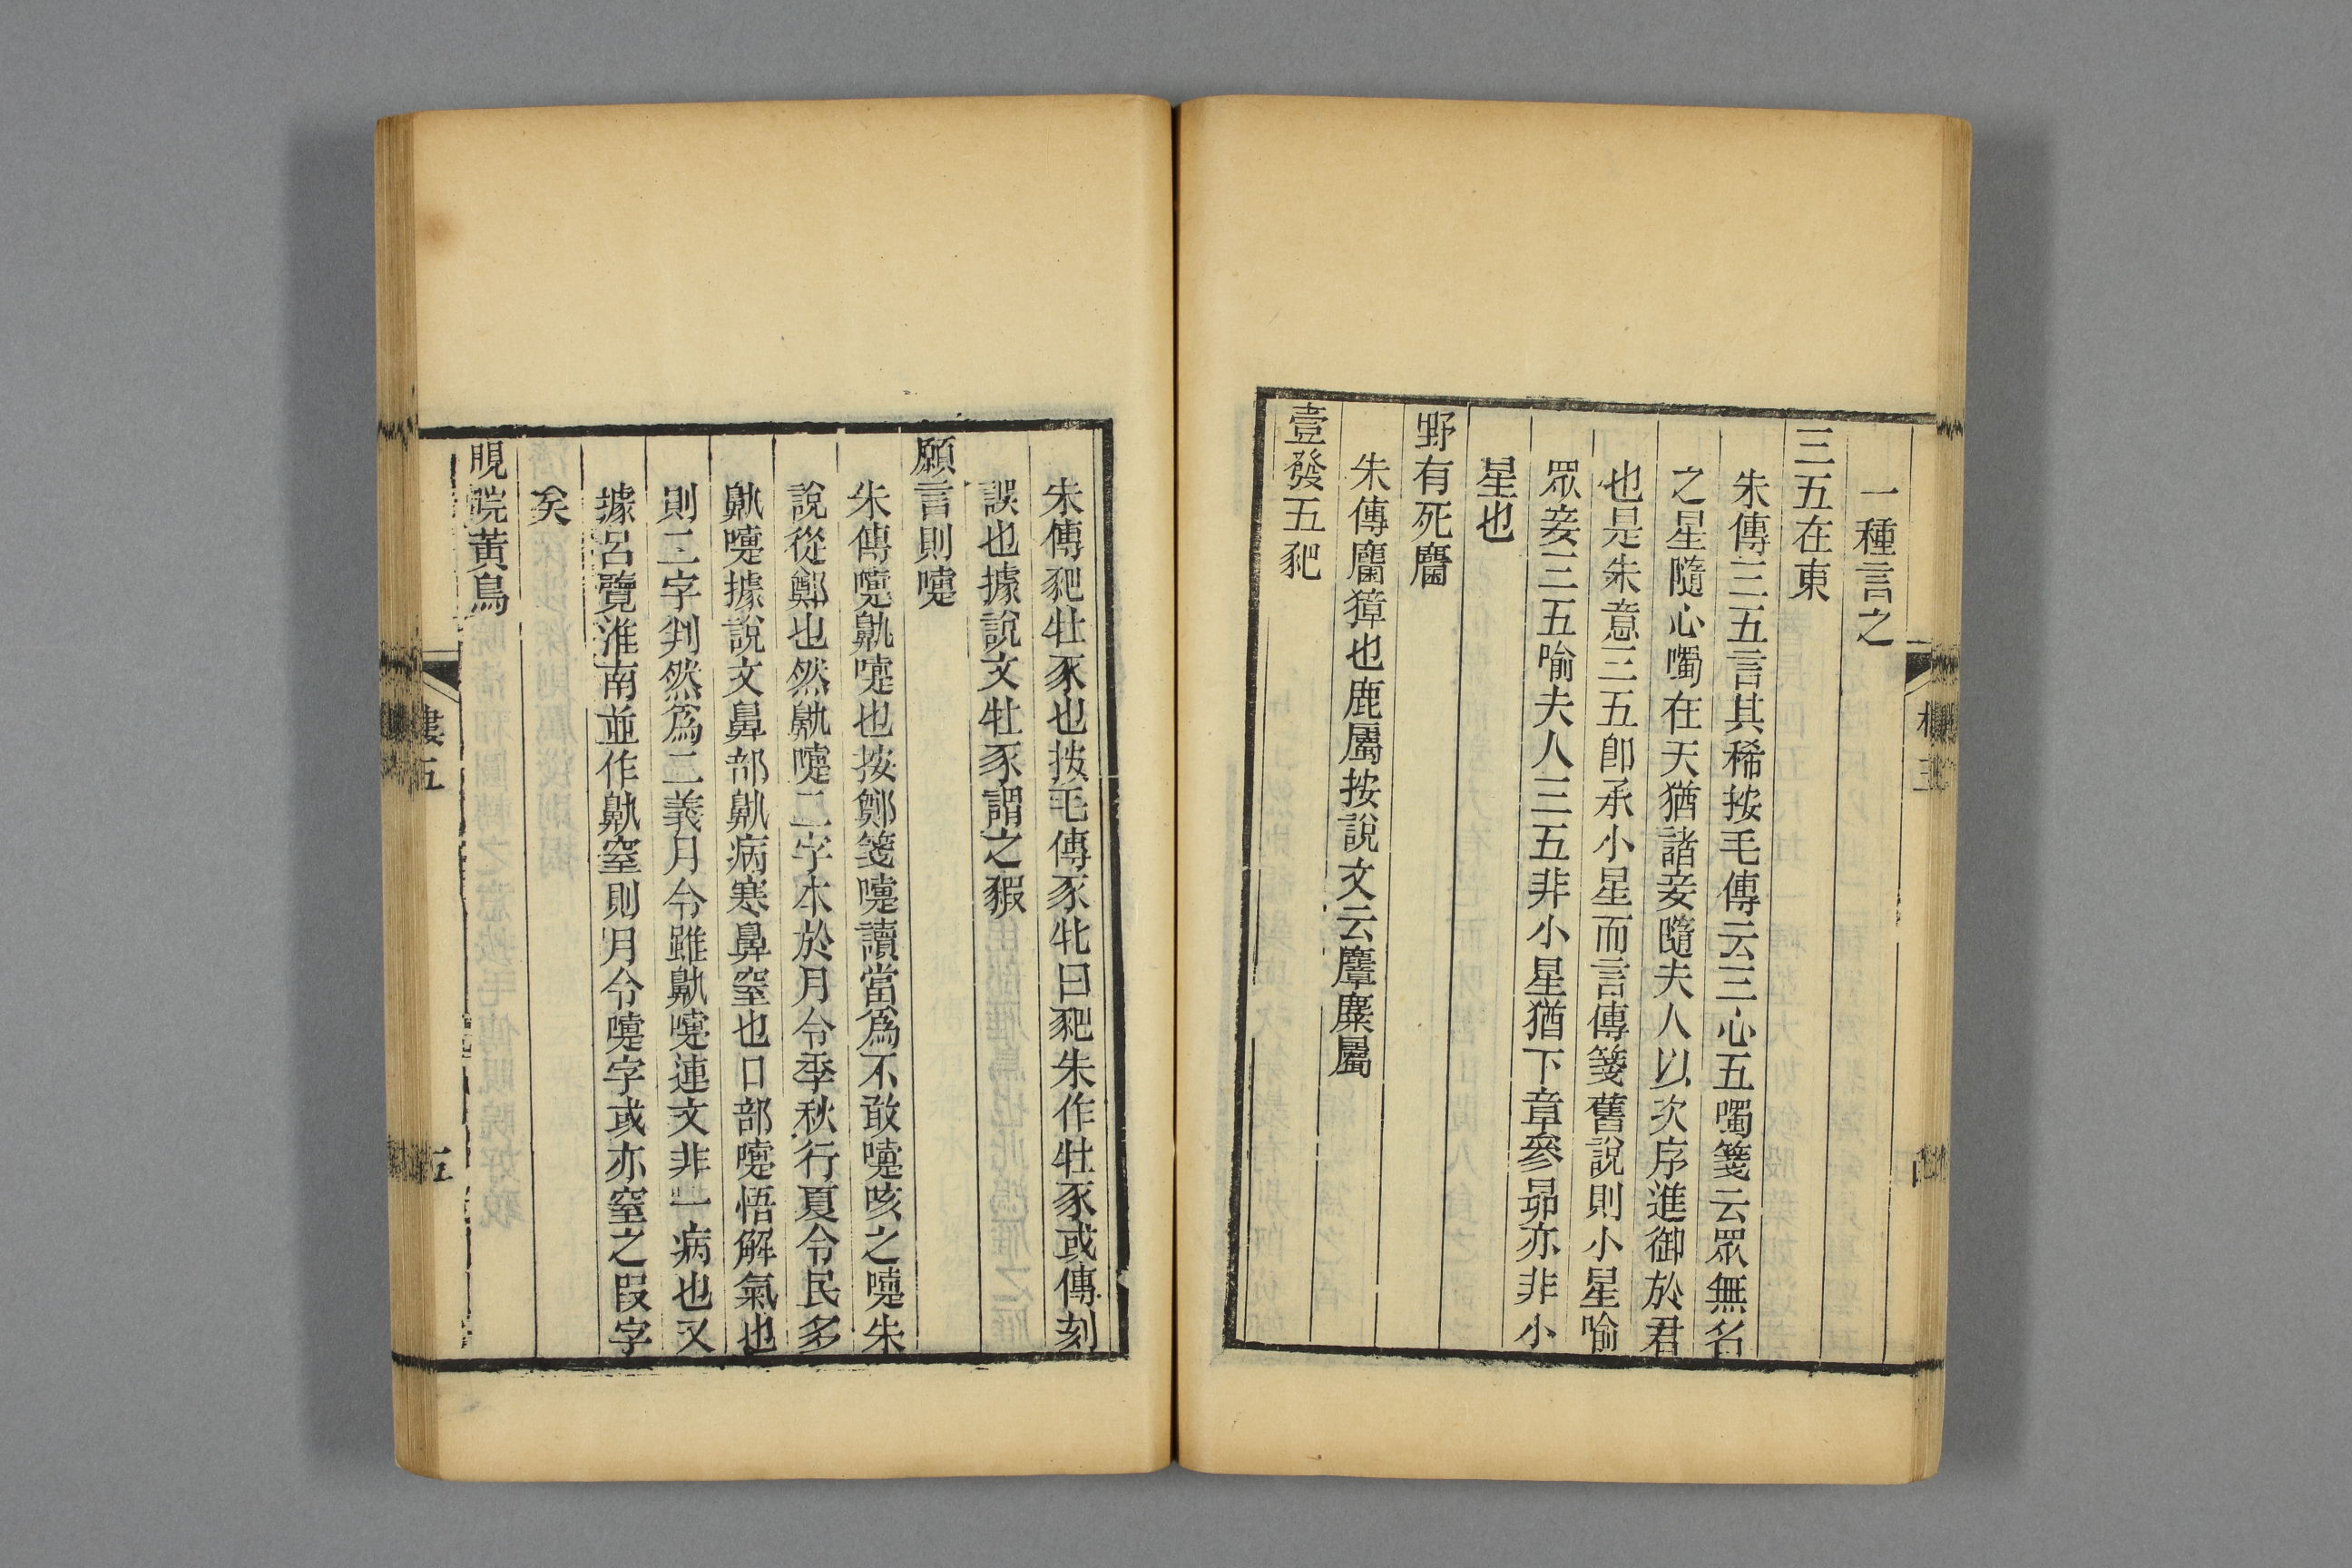 一種言之
三五在東
朱傳三五言其稀按毛傳云三心五噣箋云眾無名
之星隨心噣在天猶諸妾隨夫人以次序進御於君
也是朱意三五卽承小星而言傳箋舊說則小星喻
眾妾三五喻夫人三五非小星猶下章參昴亦非小
星也
野有死麕
朱傳麕獐也鹿屬按說文云麞麋屬
壹發五豝
朱傳豝牡豕也按毛傳豕牝曰豝朱作牡豕或傳刻
誤也據說文牡豕謂之豭
願言則嚏
朱傳嚏鼽嚏也按鄭箋嚏讀當爲不敢嚏咳之嚏朱
說從鄭也然鼽嚏二字本於月令季秋行夏令民多
鼽嚏據說文鼻部鼽病寒鼻窒也口部嚏悟解氣也
則二字判然爲二義月令雖鼽嚏連文非一病也又
據呂覽淮南並作鼽窒則月令嚏字或亦窒之叚字
矣
睍睆黃鳥
五